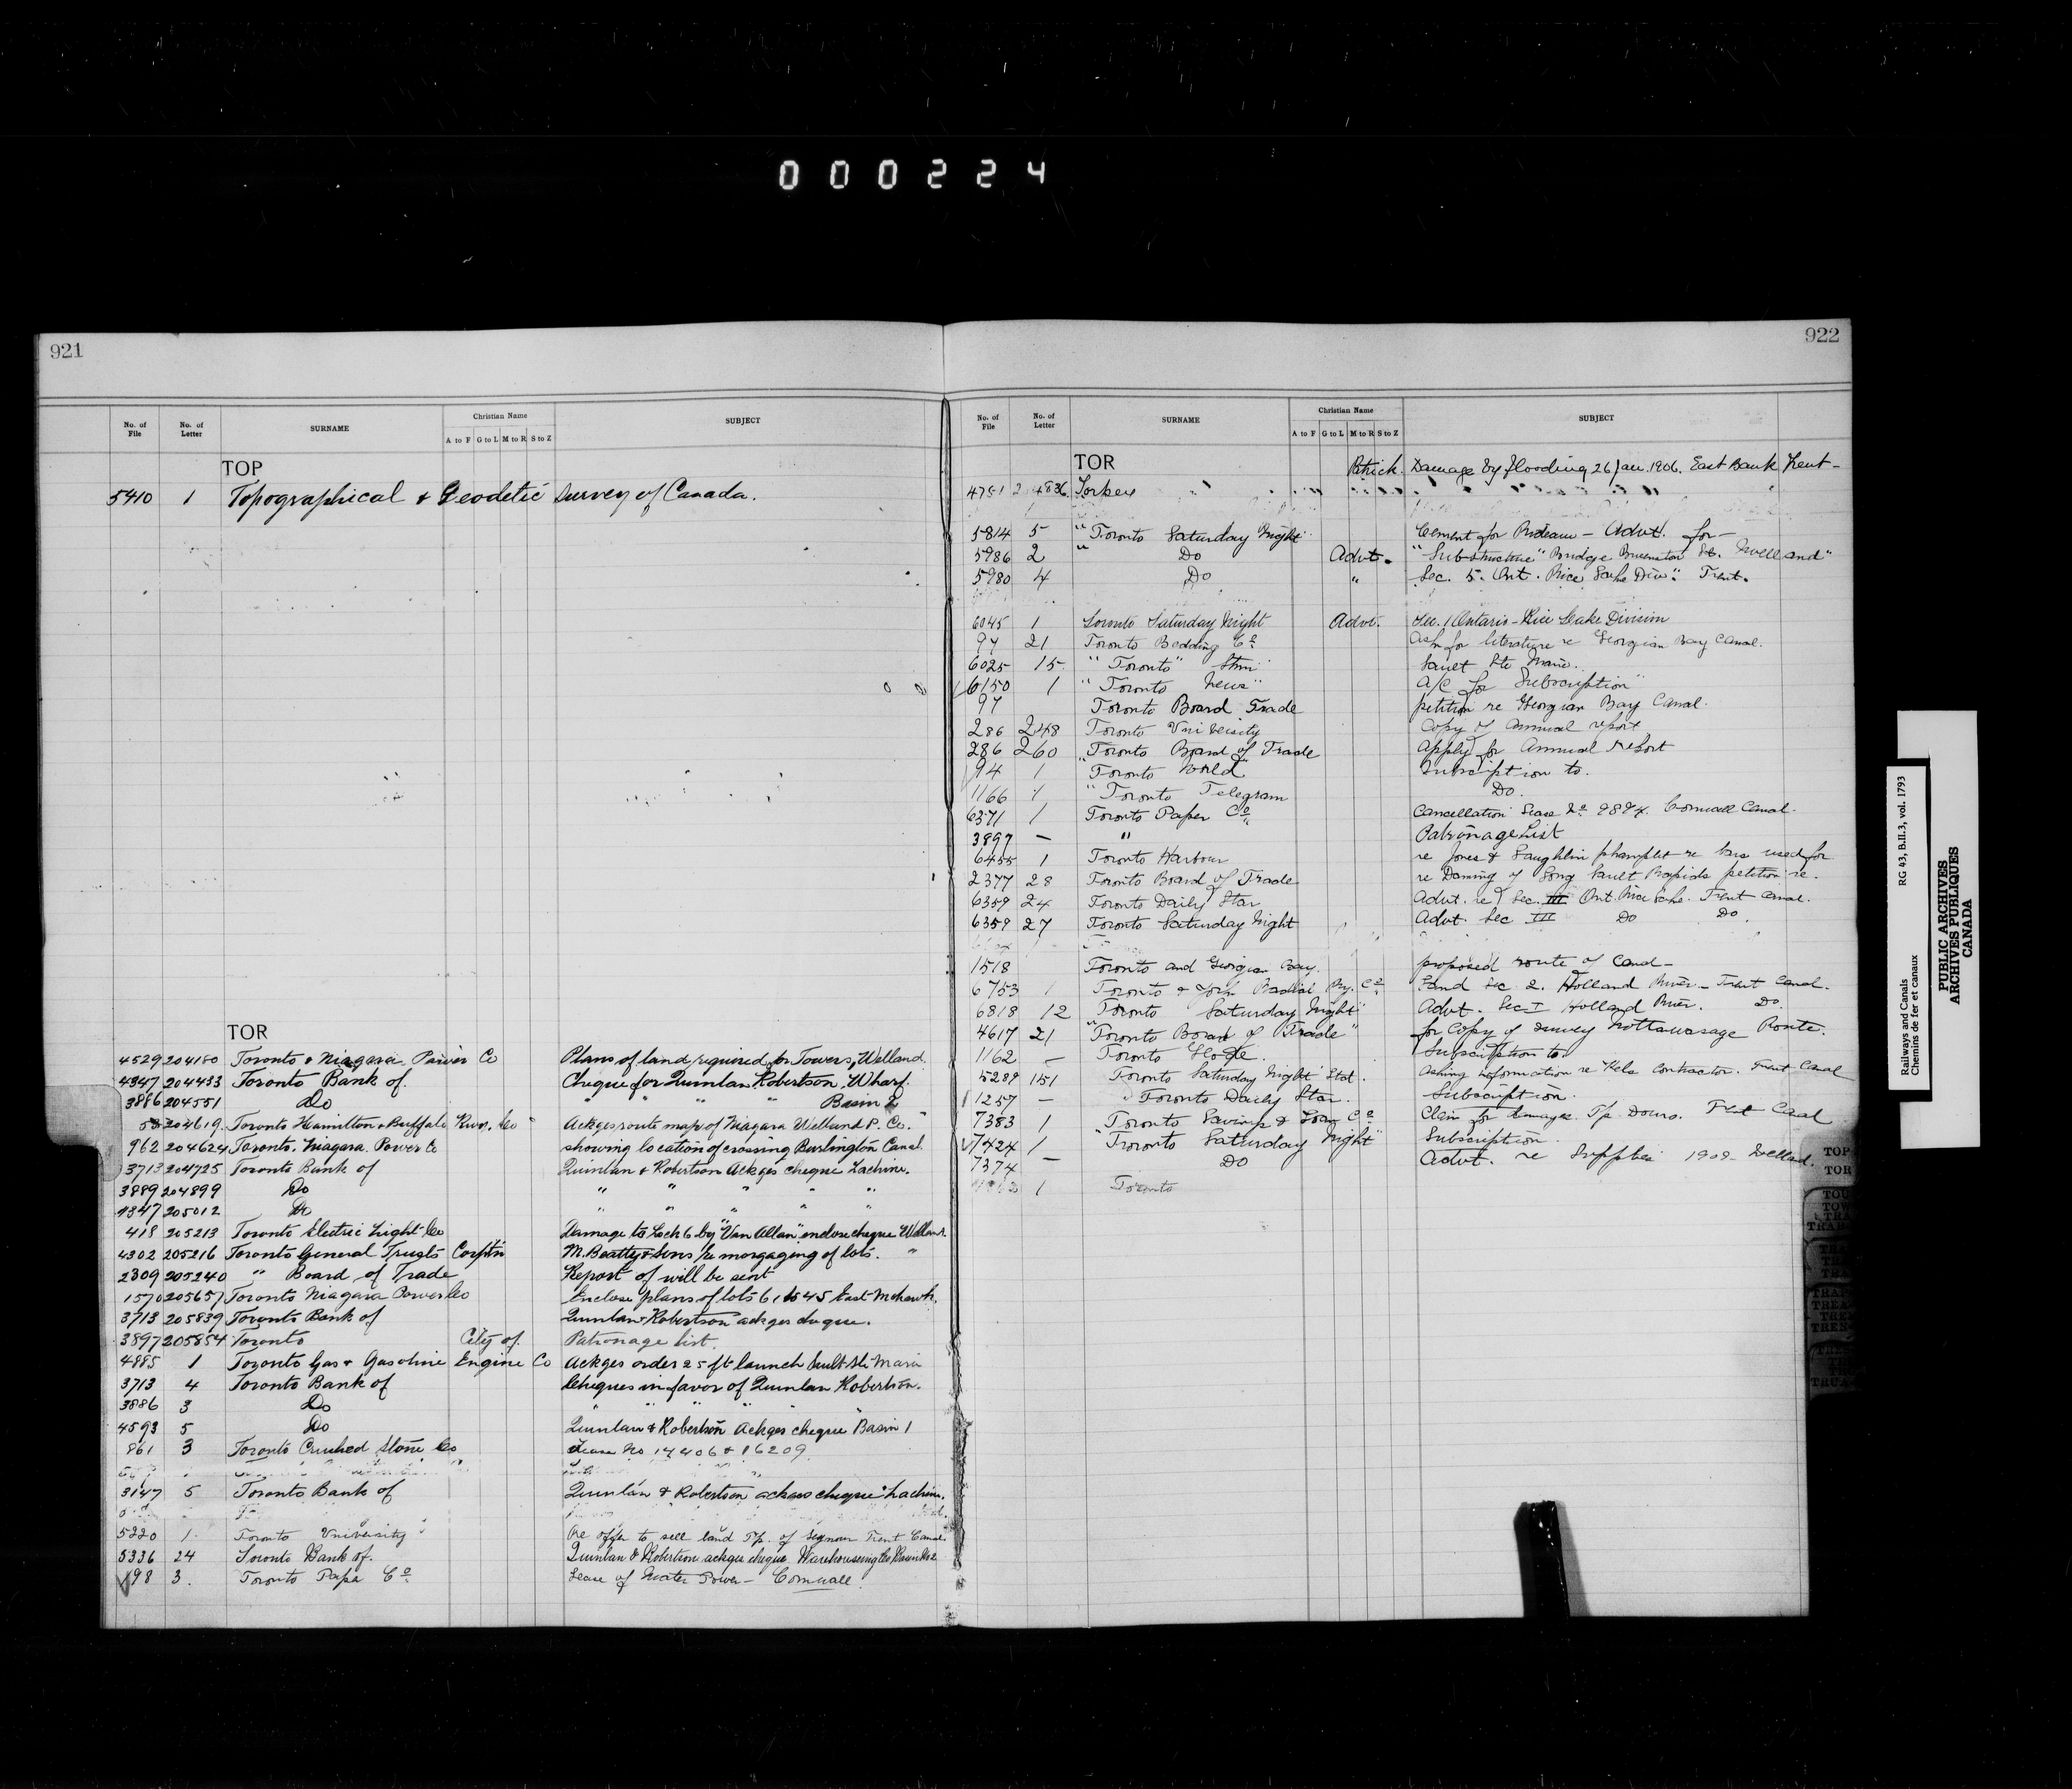 000224
921
No. of File No. of Letter SURNAME Christian Name A to F G to L M to R S to Z SUBJECT
TOP
5410 1 Topographical & Geodetic Survey of Canada.
TOR
4529 204180 Toronto & Niagara Power Co Plans of land required for Towers, Welland.
4347 204433 Toronto Bank of. Cheque for Quinlan Robertson, Wharf.
3886 204551 Do " " " " Basin 2
204619 Toronto Hamilton & Buffalo Rwy. Co Ackges route map of Niagara Welland P. Co.
962 204624 Toronto. Niagara Power Co showing location of crossing Burlington Canal
3713 204725 Toronto Bank of Quinlan & Robertson Ackges cheque Lachine.
3889 204899 Do " " " " "
4347 205012 Do " " " " "
418 205213 Toronto Electric Light Co Damage to Lock 6 by "Van Allan" enclose cheque Welland.
4302 205216 Toronto General Trusts Corptn M. Beatty & Sons re morgaging of lots. "
2309 205240 " Board of Trade Report of will be sent
1570 205657 Toronto Niagara Power Co Enclose plans of lots 6, to 45 East Mohawk.
3713 205839 Toronto Bank of Quinlan & Robertson ackges cheque.
3897 205854 Toronto City of. Patronage list.
4885 1 Toronto Gas & Gasoline Engine Co Ackges order 25 ft launch Sault Ste Marie
3713 4 Toronto Bank of Cheques in favor of Quinlan Robertson.
3886 3 Do " " " "
4593 5 Do Quinlan & Robertson Ackges cheque Basin 1
861 3 Toronto Crushed Stone Co Lease No 17406 & 16209
3147 5 Toronto Bank of Quinlan & Robertson ackges cheque Lachine.
5220 1 Toronto University Re offer to sell land Tp. of Seymour Trent Canal
5336 24 Toronto Bank of. Quinlan & Robertson ackges cheque Warehousing Co Basin No 2
98 3. Toronto Paper Co Lease of Water Power - Cornwall.
922
No. of File No. of Letter SURNAME Christian Name A to F G to L M to R S to Z SUBJECT
TOR
4781 Torkey Patrick. Damage by flooding 26 Jan. 1906. East Bank Trent -
5814 5 "Toronto Saturday Night" Cement for Rideau - Advt. for -
5986 2 " Do Advt. "Substructure" Bridge Queenston St. Welland"
5980 4 Do " Sec. 5. Ont. Rice Lake Div". Trent.
6045 1 Toronto Saturday Night Advt. Sec. 1 Ontario - Rice Lake Division
97 21 Toronto Bedding Co Ask for literature re Georgian Bay Canal.
6025 15 "Toronto" Stmr Sault Ste Marie.
6150 1 "Toronto News" A/C for Subscription"
97 Toronto Board Trade petition re Georgian Bay Canal.
286 248 Toronto University Copy of Annual report
286 260 Toronto Board of Trade Apply for Annual Report
94 1 "Toronto World" Subscription to.
1166 1 "Toronto Telegram Do.
6371 1 Toronto Paper Co Cancellation Lease No Cornwall Canal.
3897 — " Patronage List
6455 1 Toronto Harbour re Jones & Laughlin phamplet re bars used for
2377 28 Toronto Board of Trade re Daming of Long Sault Rapids petition re.
6359 24 Toronto Daily Star Advt. re Sec. III Ont. Rice Lake. Trent Canal.
6359 27 Toronto Saturday Night Advt. Sec III Do Do.
1518 Toronto and Georgian Bay. proposed route of Canal -
6753 1 Toronto & York Radial Ry. Co. Land Sec 2. Holland River - Trent Canal.
6818 12 Toronto Saturday Night" Advt. Sec I Holland River. Do.
4617 21 "Toronto Board of Trade" for Copy of survey Nottawasaga Route.
1162 — Toronto Globe. Subscription to.
5289 151 Toronto Saturday Night Asking information re contractor. Trent Canal
11257 — Toronto Daily Star. Subscription.
7383 1 Toronto Savings & Loan Co Claim for damages Tp. Douro. Trent Canal
7424 1 "Toronto Saturday Night" Subscription.
7374 — Do Advt. re Supplies 1909 - Welland.
1 Toronto
TOP
TOR
TOU
TOW
TRA
RG 43, B.II.3, vol. 1793
Railways and Canals
Chemins de fer et canaux
PUBLIC ARCHIVES
ARCHIVES PUBLIQUES
CANADA